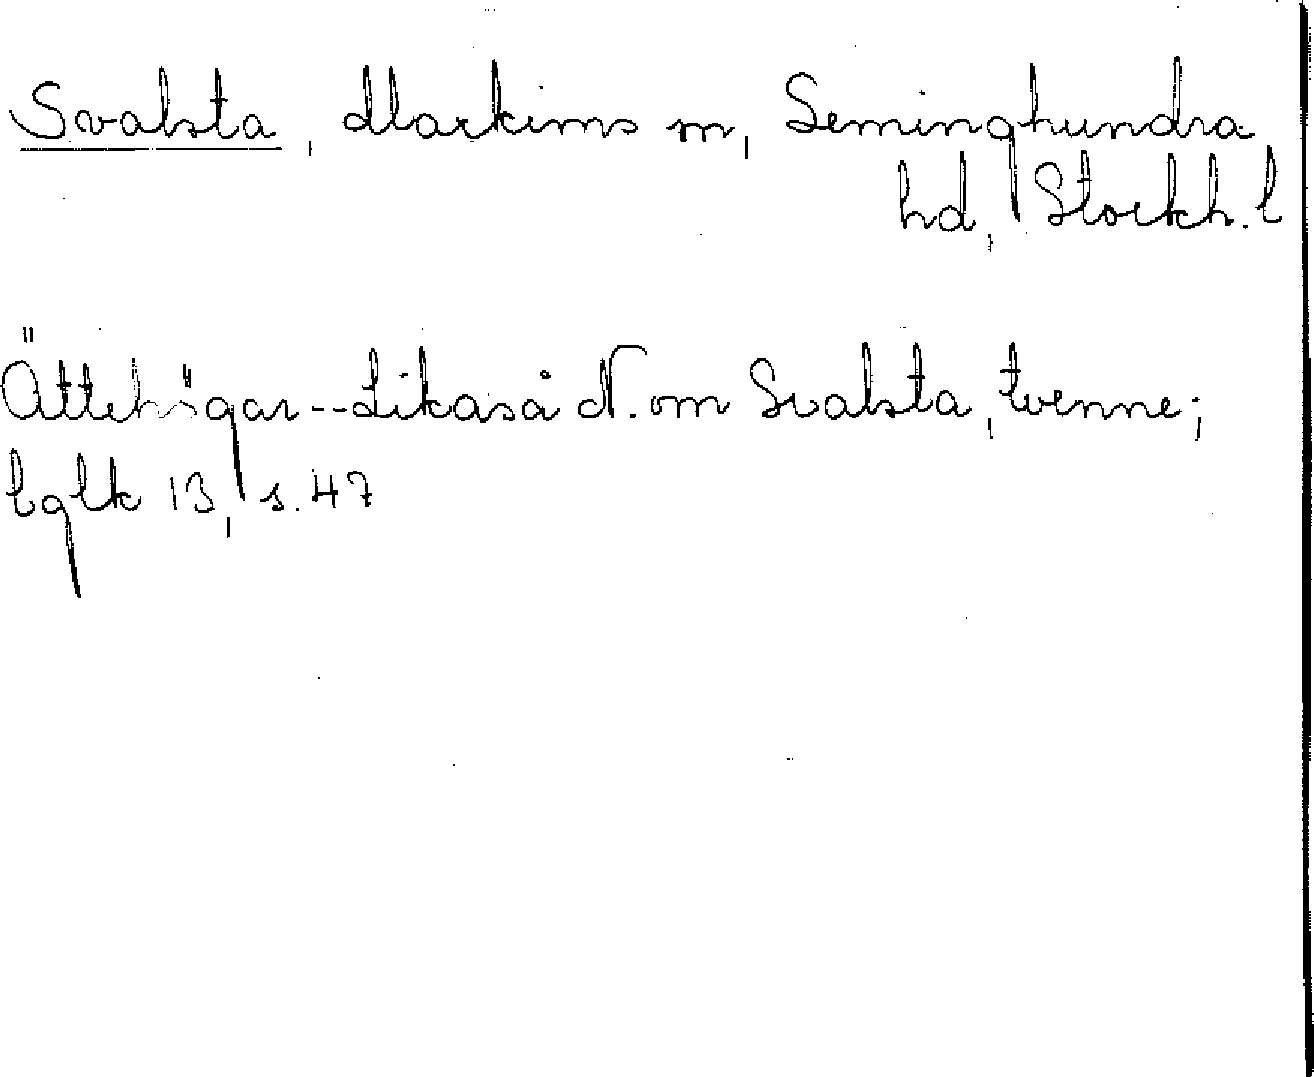 Svalsta, Markims sn, Seminghundra
hd, Stockh. l
Ättehögar--Likaså N. om Svalsta, tvenne;
lglk 13, s. 47